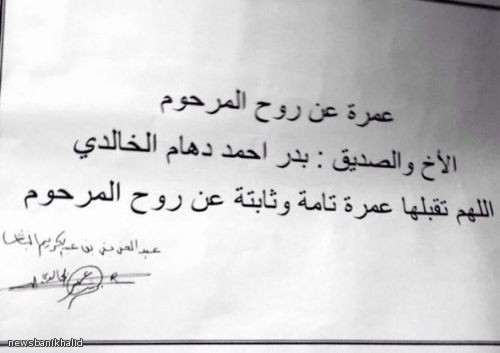 عمرة عن روح المرحوم
الأخ والصديق : بدر احمد دهام الخالدي
اللهم تقبلها عمرة تامة وثابتة عن روح المرحوم
عبد العزيز بن عبدالكريم
newsbanikhalid